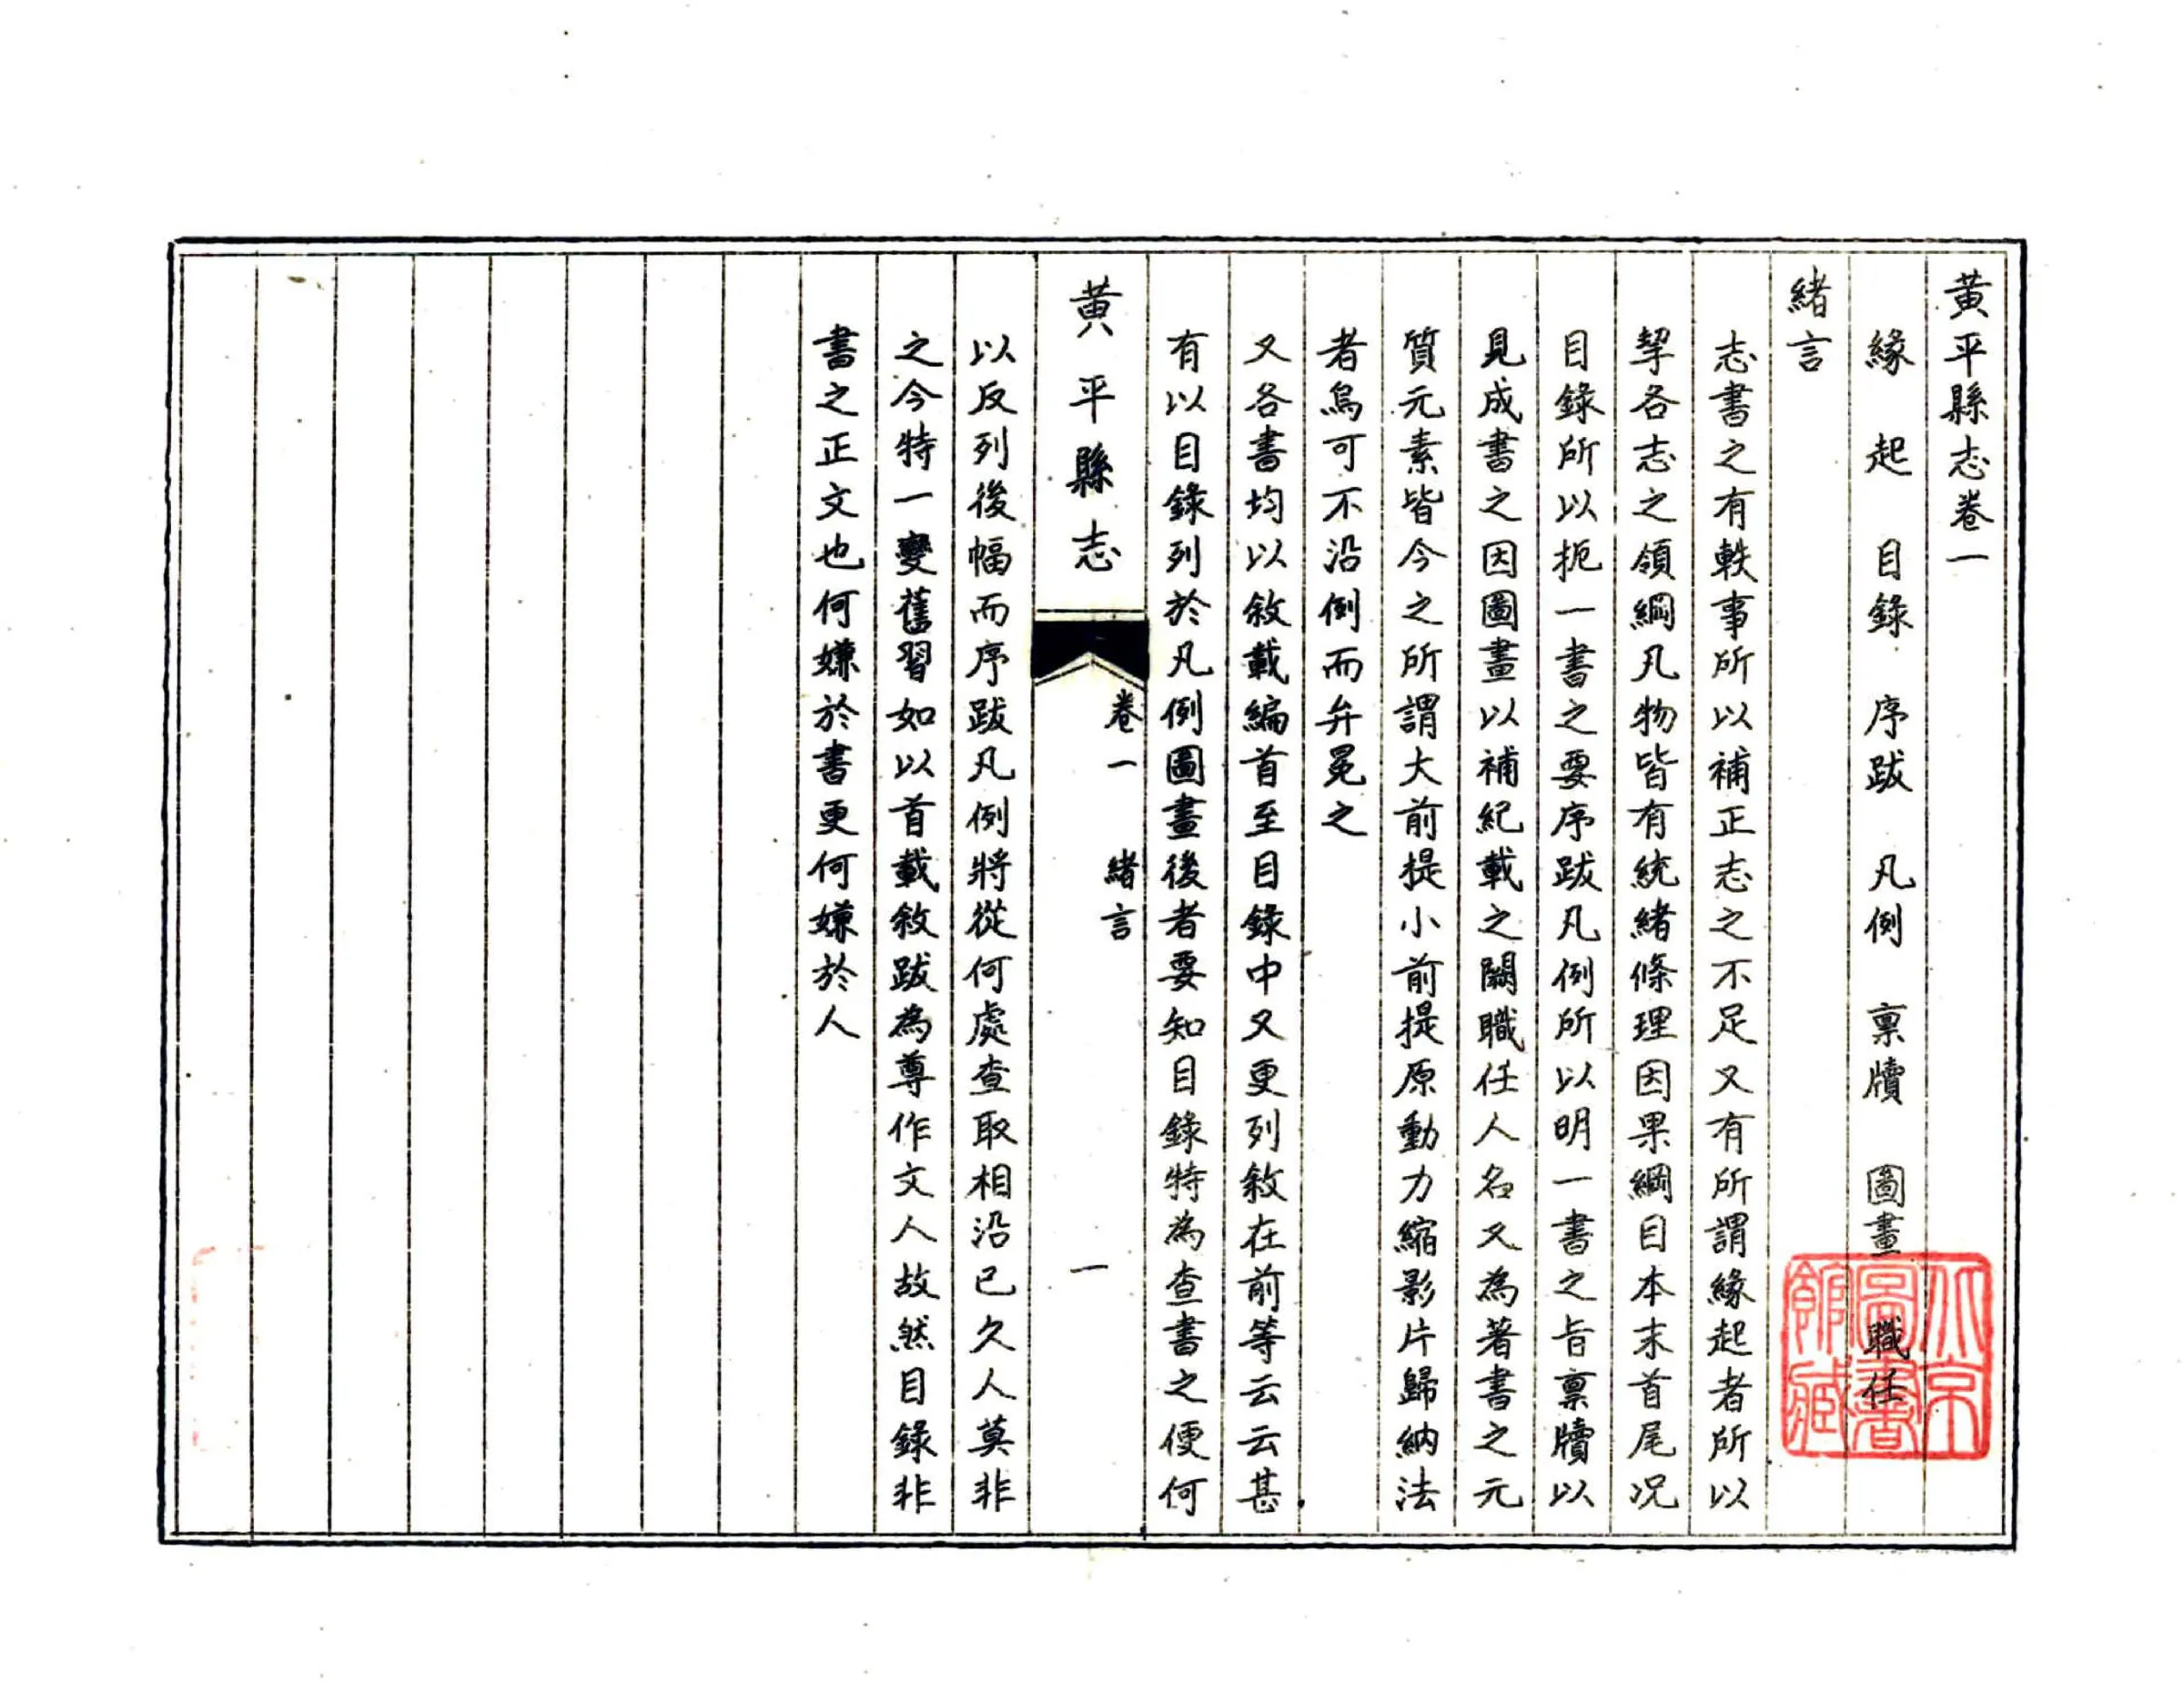 黃平縣志卷一
緣起 目錄 序跋 凡例 稟牘 圖畫 職任
緒言
志書之有軼事所以補正志之不足又有所謂緣起者所以
挈各志之領綱凡物皆有統緒條理因果綱目本末首尾况
目錄所以扼一書之要序跋凡例所以明一書之旨稟牘以
見成書之因圖畫以補紀載之闕職任人名又為著書之元
質元素皆今之所謂大前提小前提原動力縮影片歸納法
者烏可不沿例而弁冕之
又各書均以敘載編首至目錄中又更列敘在前等云云甚
有以目錄列於凡例圖畫後者要知目錄特為查書之便何
黃平縣志 卷一 緒言 一
以反列後幅而序跋凡例將從何處查取相沿已久人莫非
之今特一變舊習如以首載敘跋為尊作文人故然目錄非
書之正文也何嫌於書更何嫌於人
北京圖書館藏